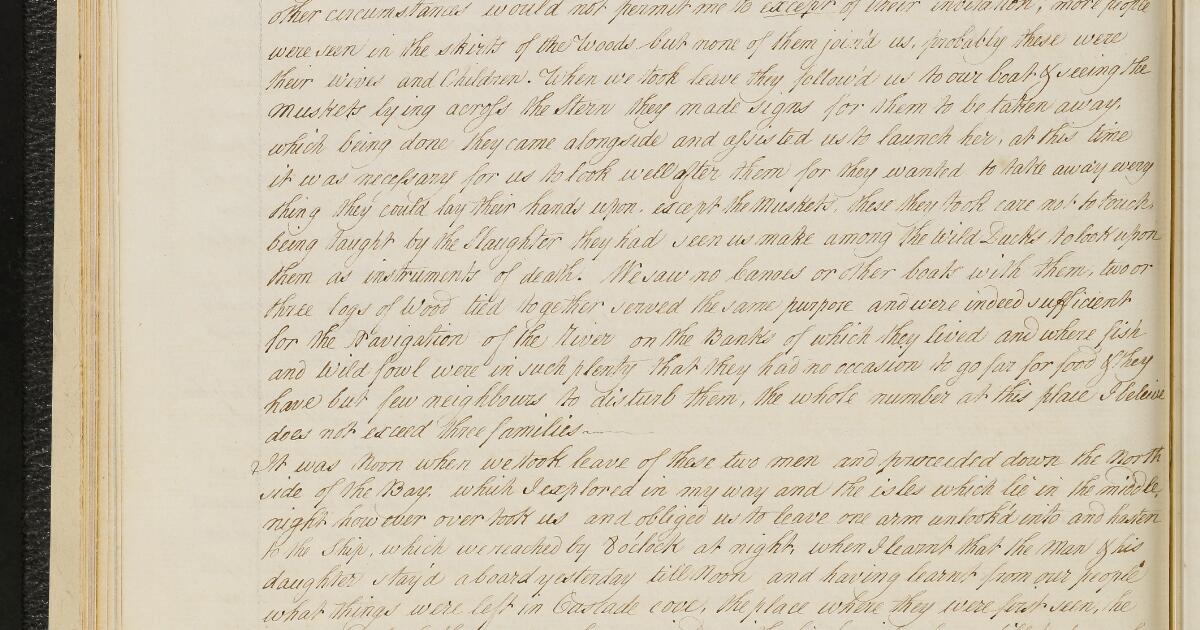 other circumstances would not permit me to except of their invitation, more people
were seen in the skirts of the Woods but none of them join'd us, probably these were
their wives and Children. When we took leave they follow'd us to our boat & seeing the
Muskets lying across the Stern they made signs for them to be taken away,
which being done they came alongside and assisted us to launch her, at this time
it was necessary for us to look well after them for they wanted to take away every
thing they could lay their hands upon, except the Muskets, these they took care not to touch,
being taught by the Slaughter they had seen us make among the Wild Ducks to look upon
them as instruments of death. We saw no Canoes or other boats with them, two or
three logs of Wood tied together served the same purpore and were indeed sufficient
for the Navigation of the River on the Banks of which they lived and where fish
and Wild fowl were in such plenty that they had no occasion to go far for food & they
have but few neighbours to disturb them, the whole number at this place I beleive
does not exceed three families
It was Noon when we took leave of these two men and proceeded down the North
side of the Bay, which I explored in my way and the isles which lie in the middle,
night however over took us and obliged us to leave one arm unlook'd into and hasten
to the Ship, which we reached by 8 o'clock at night, when I learnt that the Man & his
daughter stay'd aboard yesterday till Noon and having learnt from our people
what things were left in Cascade cove, the place where they were first seen, he